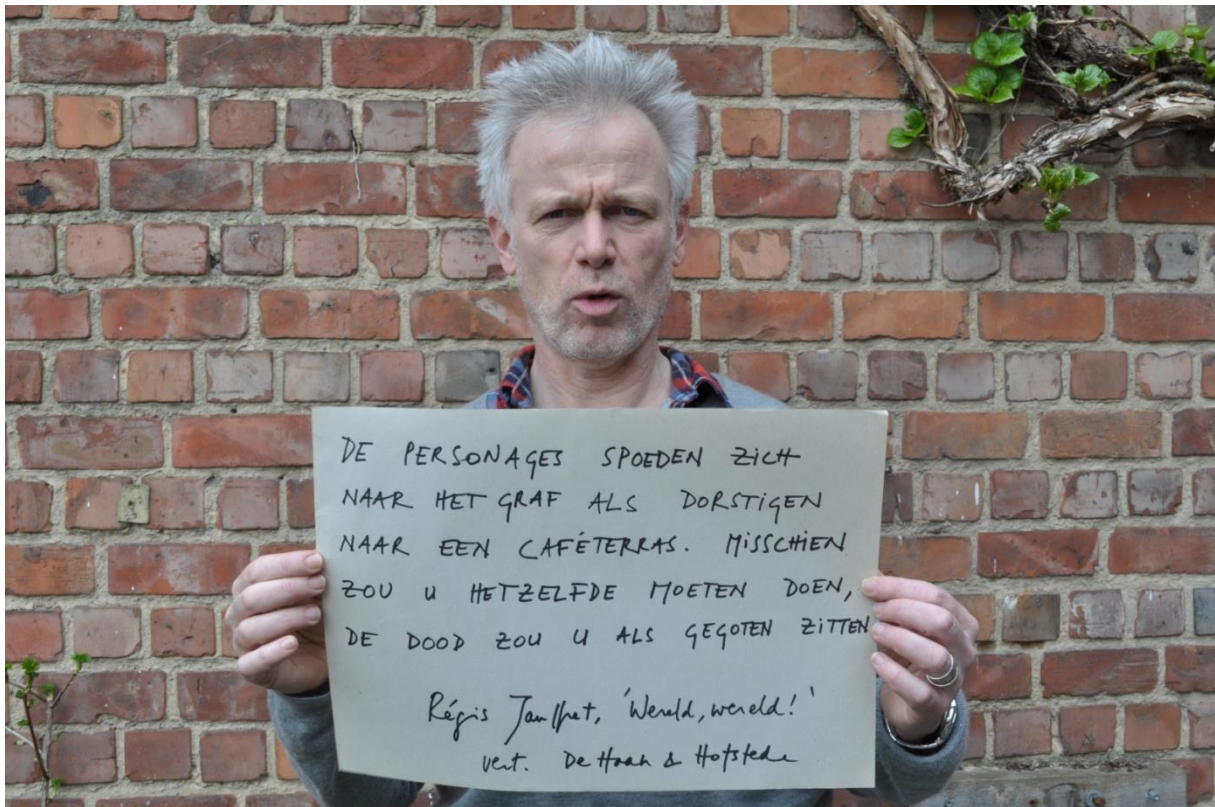 DE PERSONAGES SPOEDEN ZICH
NAAR HET GRAF ALS DORSTIGEN
NAAR EEN CAFÉTERRAS. MISSCHIEN
ZOU U HETZELFDE MOETEN DOEN,
DE DOOD ZOU U ALS GEGOTEN ZITTEN
Régis Jauffret, 'Wereld, wereld!'
vert. De Haan & Hofstede